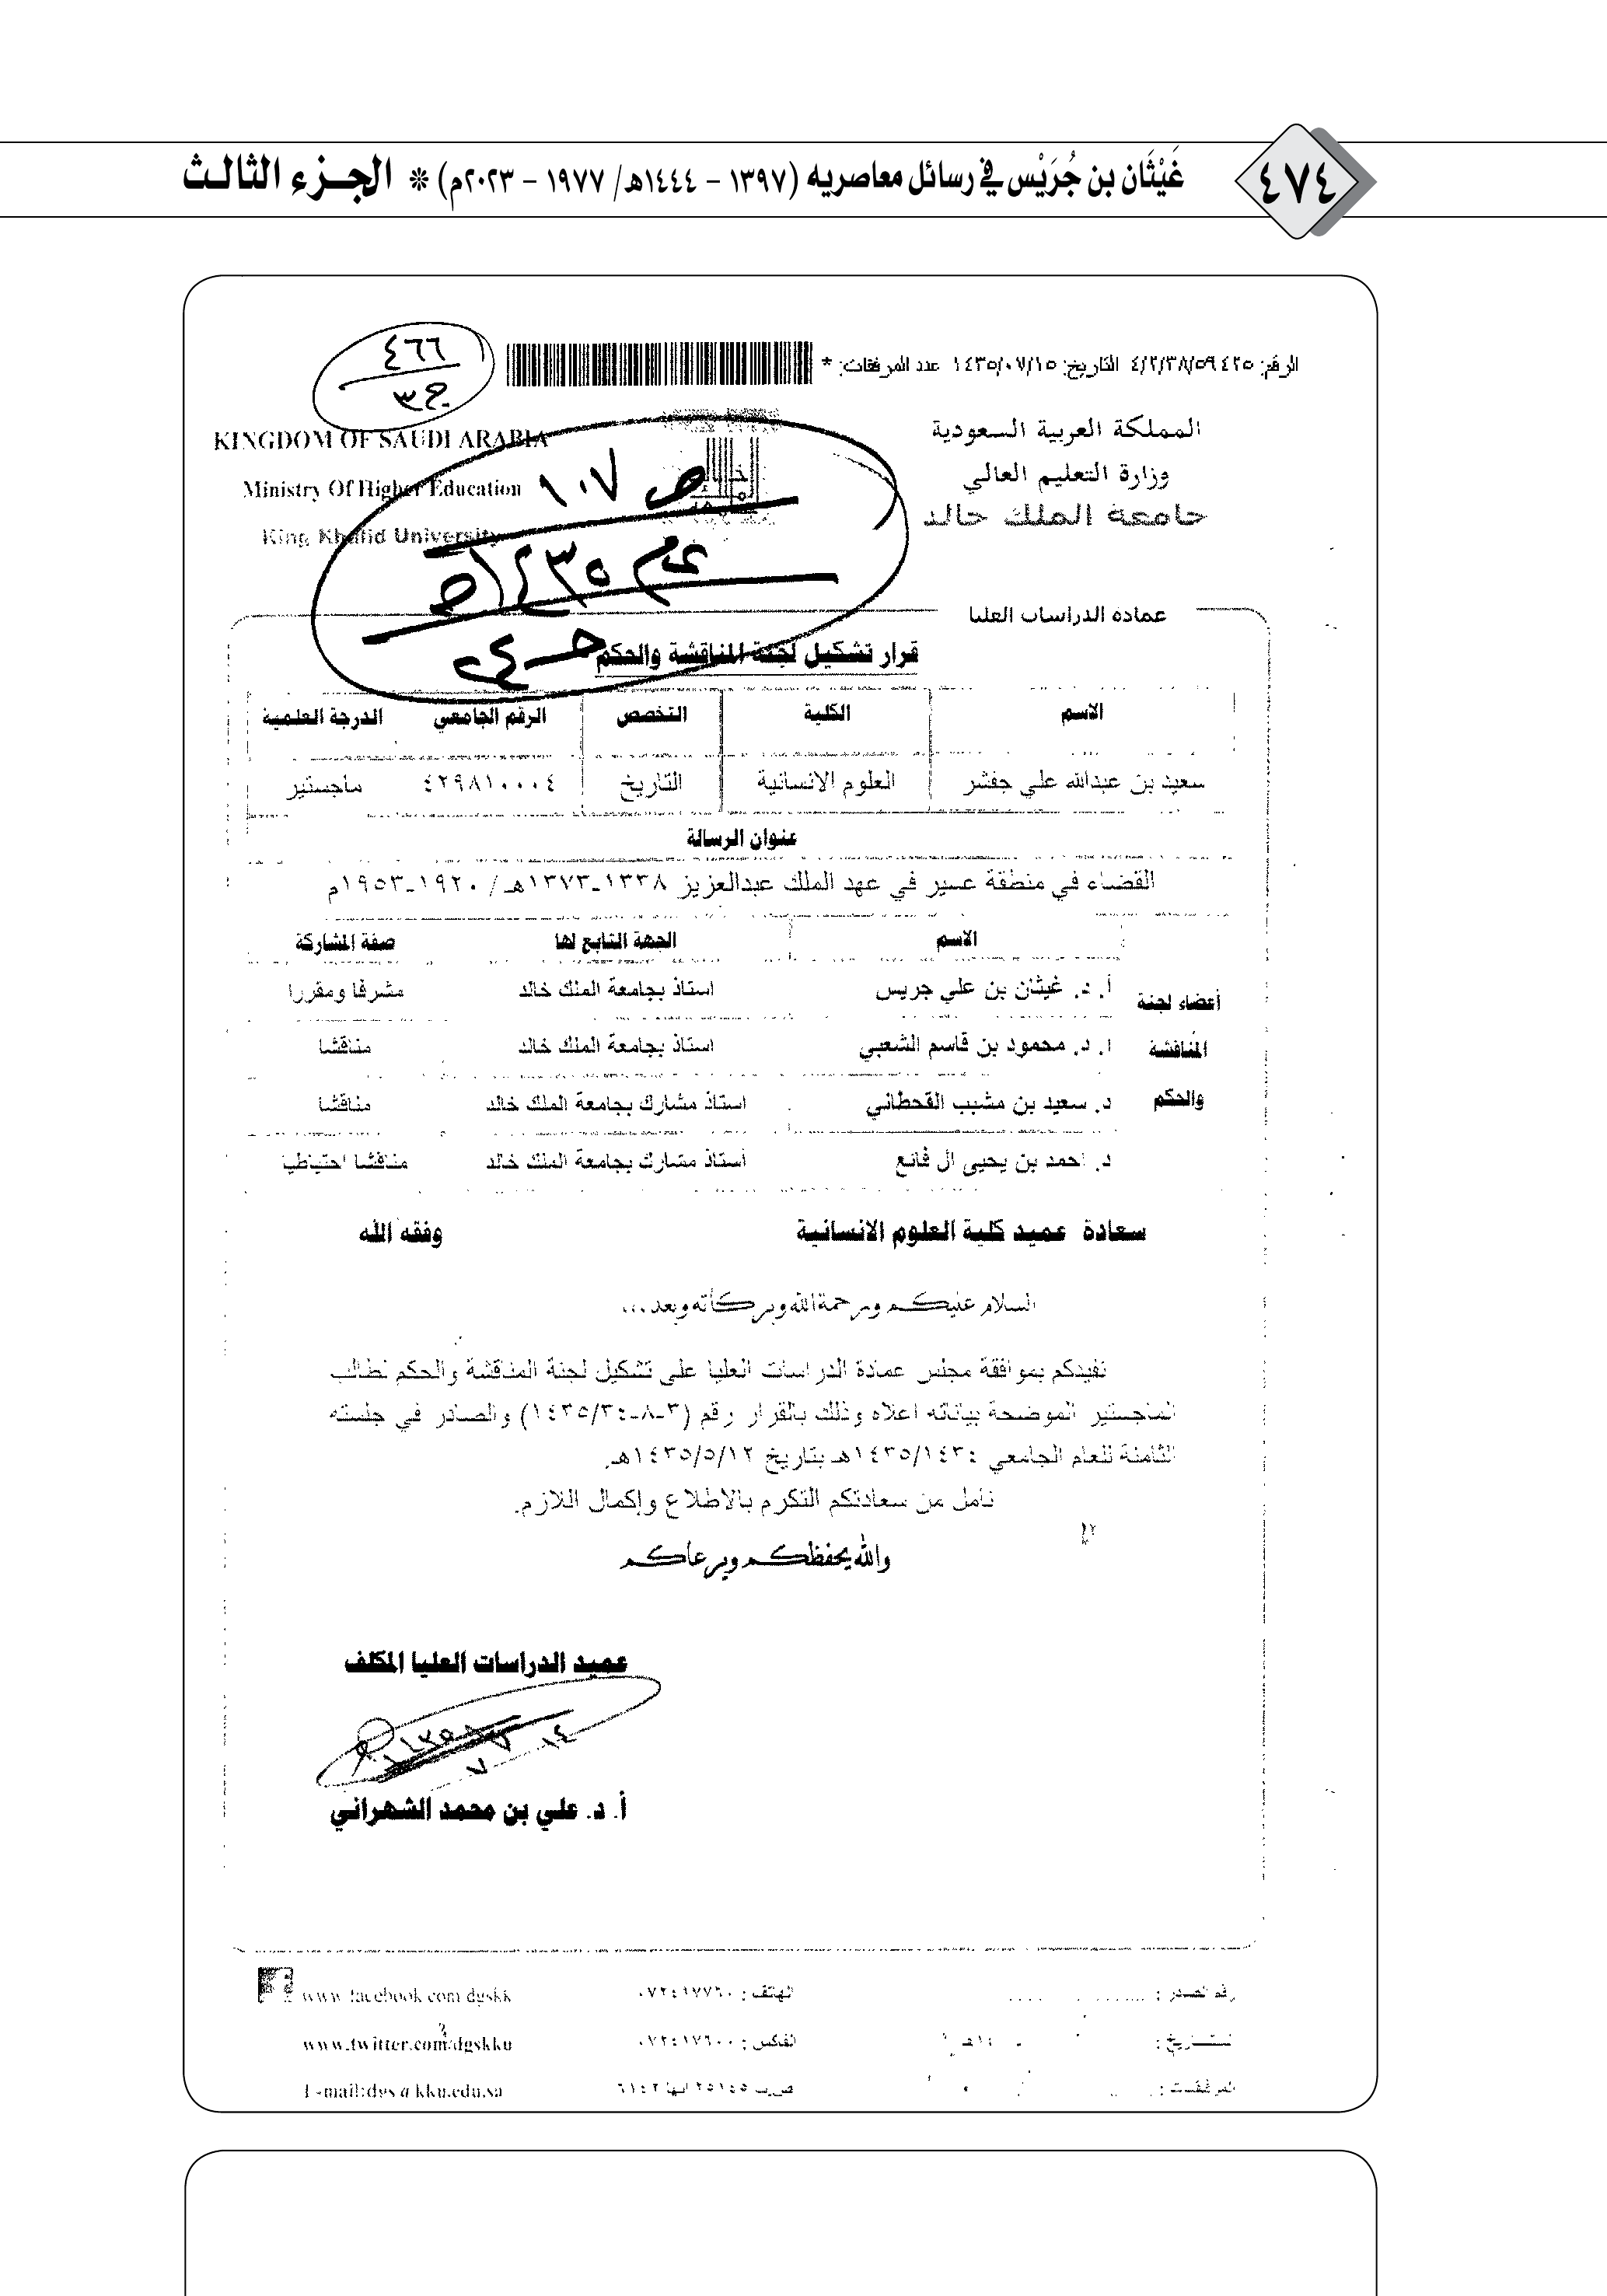 ٤٧٤
غَيْثَان بن جُرَيْس في رسائل معاصريه (١٣٩٧ - ١٤٤٤هـ/ ١٩٧٧ - ٢٠٢٣م) * الجزء الثالث
الرقم: ٤/٢/٣٨/٥٩٤٢٥ التاريخ: ١٤٣٥/٠٧/١٥ عدد المرفقات: *
٤٦٦
ج٣
المملكة العربية السعودية
وزارة التعليم العالي
جامعة الملك خالد
KINGDOM OF SAUDI ARABIA
Ministry Of Higher Education
King Khalid University
ص ١٠٧
عام ١٤٣٥هـ
عمادة الدراسات العليا
قرار تشكيل لجنة المناقشة والحكم
الاسم الكلية التخصص الرقم الجامعي الدرجة العلمية
سعيد بن عبدالله علي جفشر العلوم الانسانية التاريخ ٤٢٩٨١٠٠٠٤ ماجستير
عنوان الرسالة
القضاء في منطقة عسير في عهد الملك عبدالعزيز ١٣٣٨-١٣٧٣هـ / ١٩٢٠-١٩٥٣م
الاسم الجهة التابع لها صفة المشاركة
أعضاء لجنة أ. د. غيثان بن علي جريس استاذ بجامعة الملك خالد مشرفا ومقررا
المناقشة ا. د. محمود بن قاسم الشعبي استاذ بجامعة الملك خالد مناقشا
والحكم د. سعيد بن مشبب القحطاني استاذ مشارك بجامعة الملك خالد مناقشا
د. احمد بن يحيى ال فائع أستاذ مشارك بجامعة الملك خالد مناقشا احتياطيا
سعادة عميد كلية العلوم الانسانية وفقه الله
السلام عليكم ورحمة الله وبركاته وبعد...
نفيدكم بموافقة مجلس عمادة الدراسات العليا على تشكيل لجنة المناقشة والحكم لطالب
الماجستير الموضحة بياناته اعلاه وذلك بالقرار رقم (٣-٨-١٤٣٥/٣٤) والصادر في جلسته
الثامنة للعام الجامعي ١٤٣٥/١٤٣٤هـ بتاريخ ١٤٣٥/٥/١٢هـ.
نامل من سعادتكم التكرم بالاطلاع وإكمال اللازم.
والله يحفظكم ويرعاكم
عميد الدراسات العليا المكلف
أ. د. علي بن محمد الشهراني
رقم الصدر :
الهاتف : ٠٧٢٤١٧٧٦٠
www.facebook.com/dgskk
التاريخ :
١٤هـ
الفاكس : ٠٧٢٤١٧٦٠٠
www.twitter.com/dgskku
المرفقات :
ص.ب ٢٥١٤٥ ابها ٦١٤٢
E-mail:dgs@kku.edu.sa